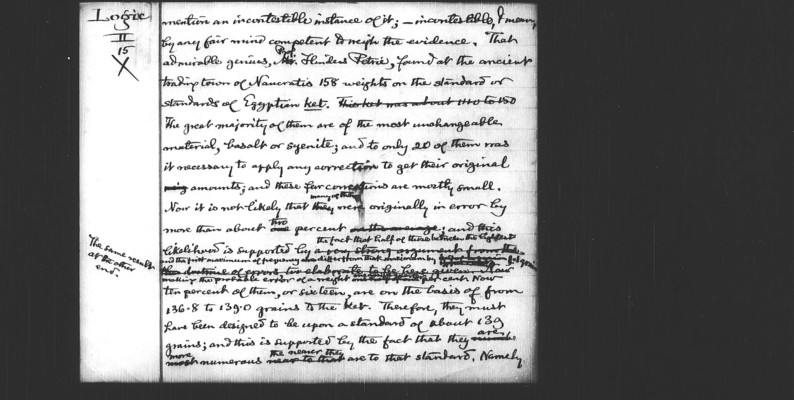 Logic
II
15
X
mention an incontestible instance of it; – incontestible, I mean,
by any fair mind competent to weigh the evidence. That
admirable genius, Mr. Prof. Flinders Petrie, found at the ancient
trading town of Naucratis 158 weights on the standard or
standards of Egyptian ket. This ket was about 140 to 150
The great majority of them are of the most unchangeable
material, basalt or syenite; and to only 20 of them was
it necessary to apply any correction to get their original
amounts; and these far corrections are mostly small.
Now it is not likely that they many of them were originally in error by
more than about one two percent on the average; and this
likelihood is supported by a very strong argument from the
the fact that half of them between the lightest
and the first maximum of frequency differ from that maximum by
the doctrine of errors too elaborate to be here given. Now
making the probable error of a weight cent. Now
ten percent of them, or sixteen, are on the basis of from
136.8 to 139.0 grains to the ket. Therefore, they must
have been designed to be upon a standard of about 139
grains; and this is supported by the fact that they are
more most numerous near to that the nearer they are to that standard. Namely
The same result
at the other
end.